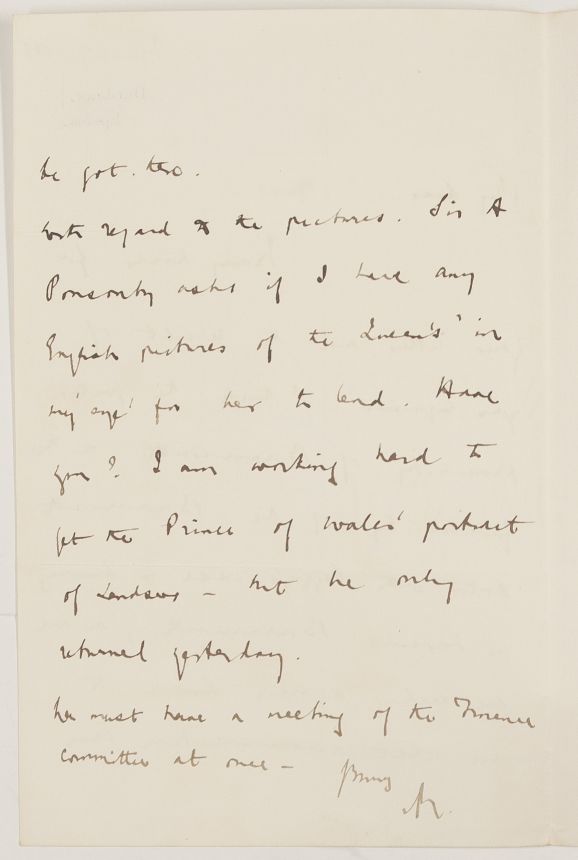 be got. too.
With regard to the pictures. Sir A
Ponsonby asks if I have any
English pictures of the Queen's "in
my eye' for her to lend. Have
you? I am working hard to
get the Prince of Wales' portrait
of Landseer - but he only
returned yesterday.
We must have a meeting of the Finance
committee at once -